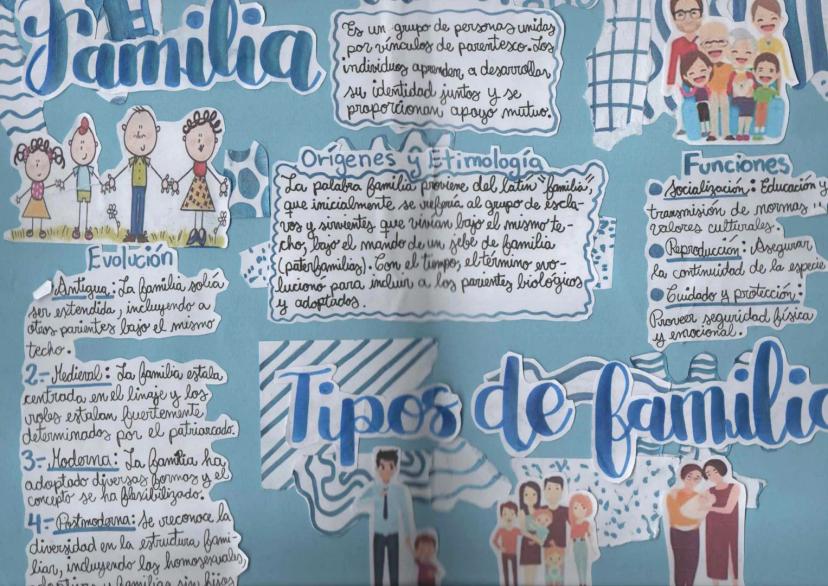 Familia
Es un grupo de personas unidas
por vínculos de parentesco. Los
individuos aprenden a desarrollar
su identidad juntos y se
proporcionan apoyo mutuo.
Orígenes y Etimología
La palabra familia proviene del latín "familia",
que inicialmente se refería al grupo de escla-
vos y sirvientes que vivían bajo el mismo te-
cho, bajo el mando de un jefe de familia
(paterfamilias). Con el tiempo, el término evo-
luciono para incluir a los parientes biológicos
y adoptados.
Funciones
Socialización: Educación y
transmisión de normas y
valores culturales.
Reproducción: Asegurar
la continuidad de la especie
Cuidado y protección:
Proveer seguridad física
y emocional.
Evolución
Antigua: La familia solía
ser extendida, incluyendo a
otros parientes bajo el mismo
techo.
2.- Medieval: La familia estaba
centrada en el linaje y los
roles estaban fuertemente
determinados por el patriarcado.
3.- Moderna: La familia ha
adoptado diversas formas y el
concepto se ha flexibilizado.
4.- Postmoderna: Se reconoce la
diversidad en la estructura fami-
liar, incluyendo las homosexuales,
adoptivas y familias sin hijos
Tipos de familia